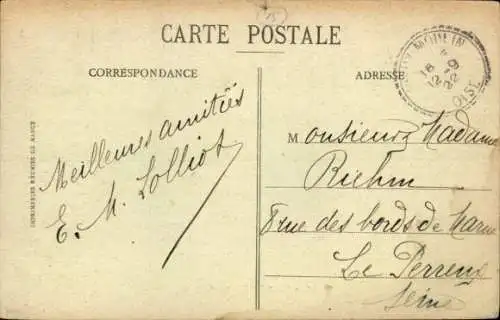 CARTE POSTALE
CORRESPONDANCE
ADRESSE
MOULIN
OISE
Meilleures amitiés
E. M. Lolliot
Monsieur Madame
Riehm
8 rue des bords de Marne
Le Perreux
Seine
IMPRIMERIES RÉUNIES DE NANCY